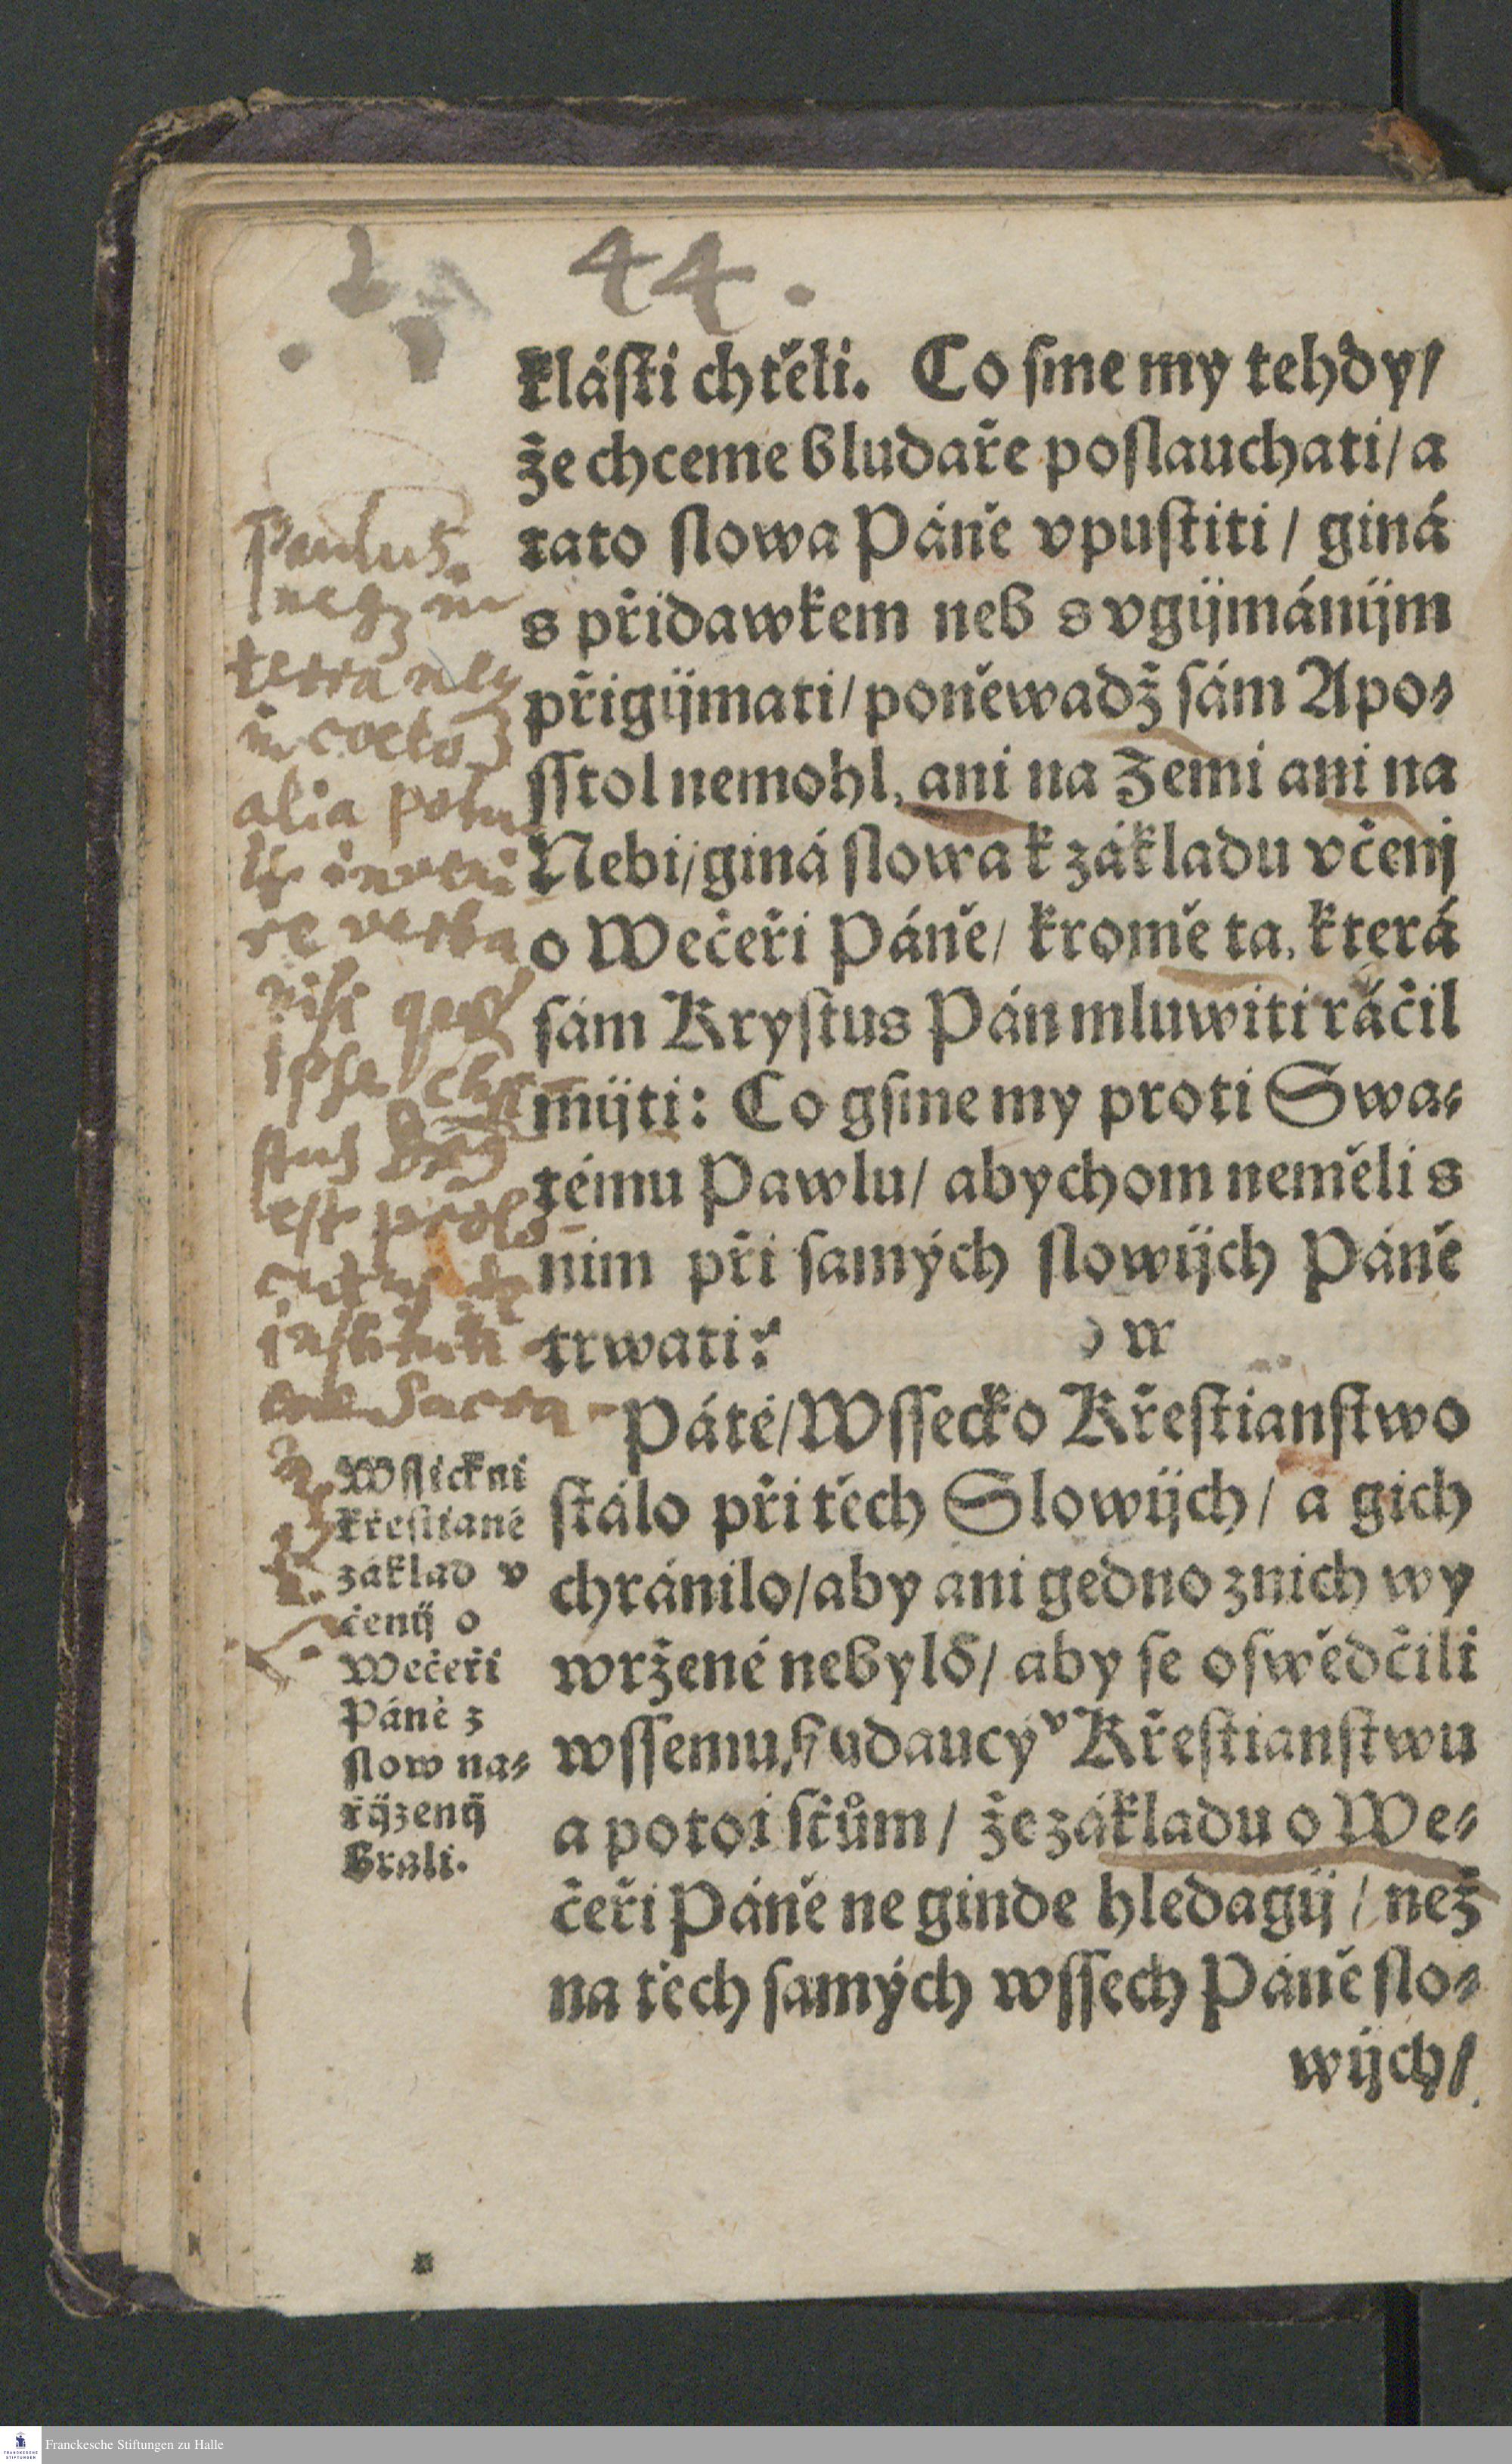 44.
klásti chtěli. Co sme my tehdy/
že chceme bludaře poslauchati/ a
tato slowa Páně vpustiti / giná
s přidawkem neb s vgijmánijm
přigijmati/ poněwadž sám Apo-
sstol nemohl, ani na Zemi ani na
Nebi/ giná slowa k základu včenj
o Wečeři Páně/ kromě ta, která
sám Krystus Pán mluwiti ráčil
mijti: Co gsme my proti Swa-
tému Pawlu/ abychom neměli s
nim při samých slowijch Páně
trwati?
Páté/ Wssecko Křestianstwo
stálo při těch Slowijch/ a gich
chránilo/ aby ani gedno znich wy
wržené nebylo/ aby se oswědčili
wssemu, budaucý Křestianstwu
a potomstům/ že základu o We-
čeři Páně ne ginde hledagij / než
na těch samých wssech Páně slo-
wijch/
Paulus.
neqz in
terra neqz
in coelo
alia potu
it inveni
re verba
nisi quae
ipse Chri
stus
est prolo
Sacra-
Wssickni
křestiané
základ v
čenij o
Wečeři
Páně z
slow na-
řijzenij
brali.
Franckesche Stiftungen zu Halle